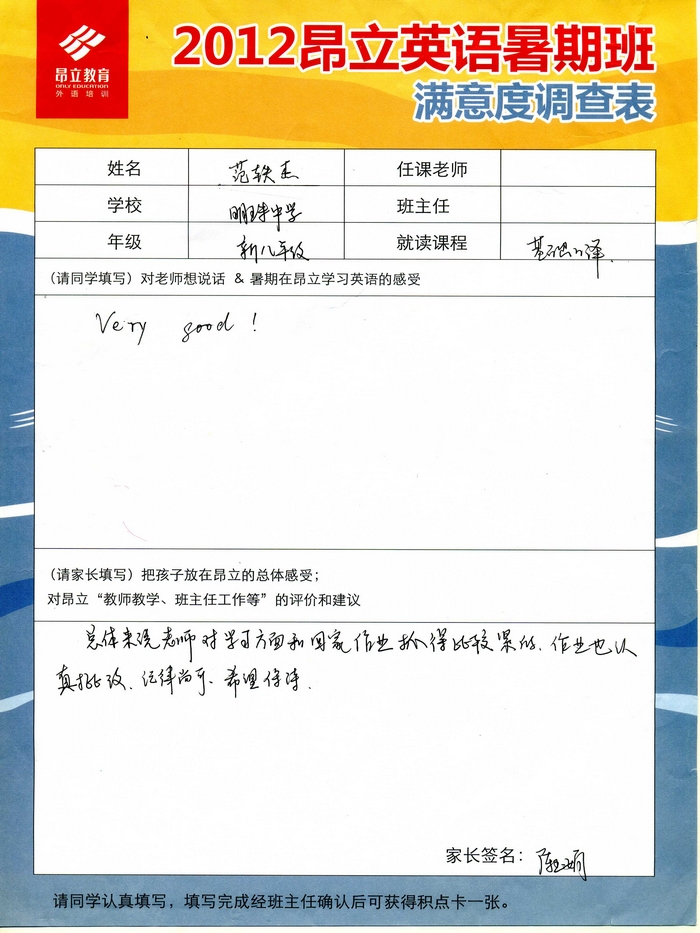 昂立教育
ONLY EDUCATION
外语培训
2012昂立英语暑期班
满意度调查表
姓名 范轶杰 任课老师
学校 明珠中学 班主任
年级 新八年级 就读课程 基础口译.
(请同学填写) 对老师想说话 & 暑期在昂立学习英语的感受
Very good!
(请家长填写) 把孩子放在昂立的总体感受；
对昂立“教师教学、班主任工作等”的评价和建议
总体来说老师对学习方面和回家作业抓得比较紧的. 作业也认
真批改. 纪律尚可. 希望保持.
家长签名：
请同学认真填写，填写完成经班主任确认后可获得积点卡一张。